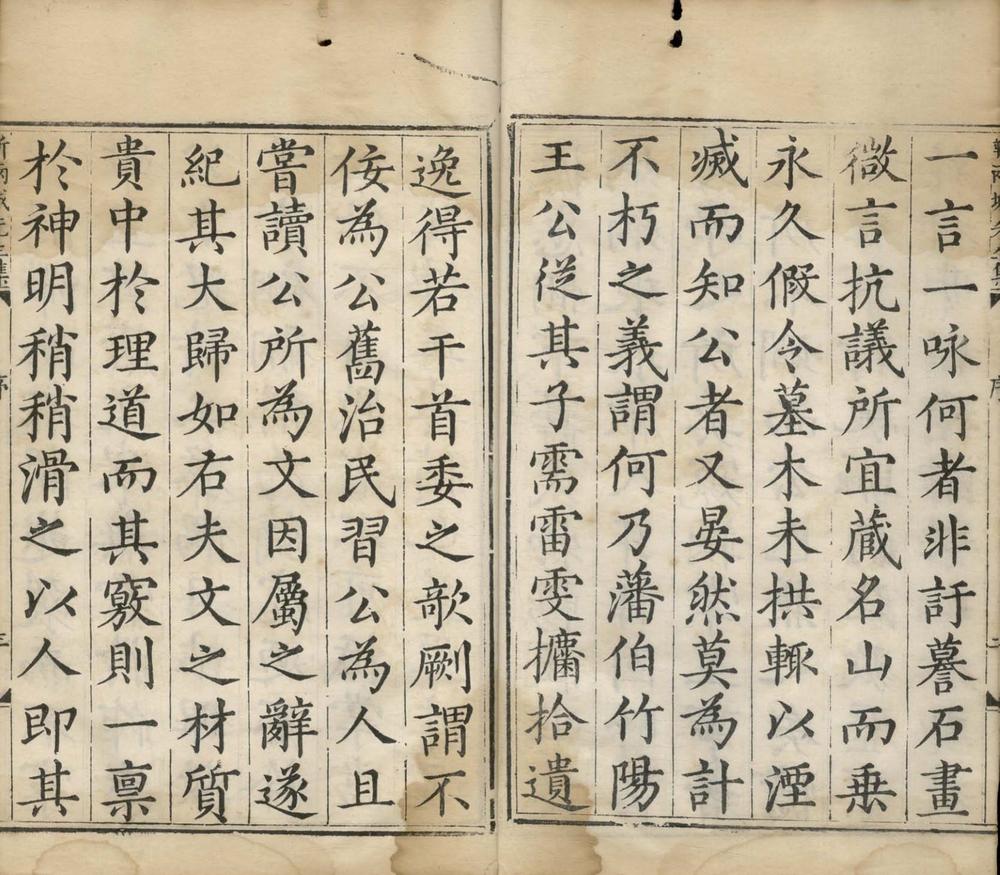 一言一咏何者非訏謩石畫
微言抗議所宜蔵名山而垂
永久假令墓木未拱輙以湮
滅而知公者又晏然莫為計
不朽之義謂何乃藩伯竹陽
王公従其子需雷雯攟拾遺
逸得若干首委之歆劂謂不
佞為公舊治民習公為人且
嘗讀公所為文因屬之辭遂
紀其大歸如右夫文之材質
貴中於理道而其竅則一禀
於神明稍稍滑之以人即其
序